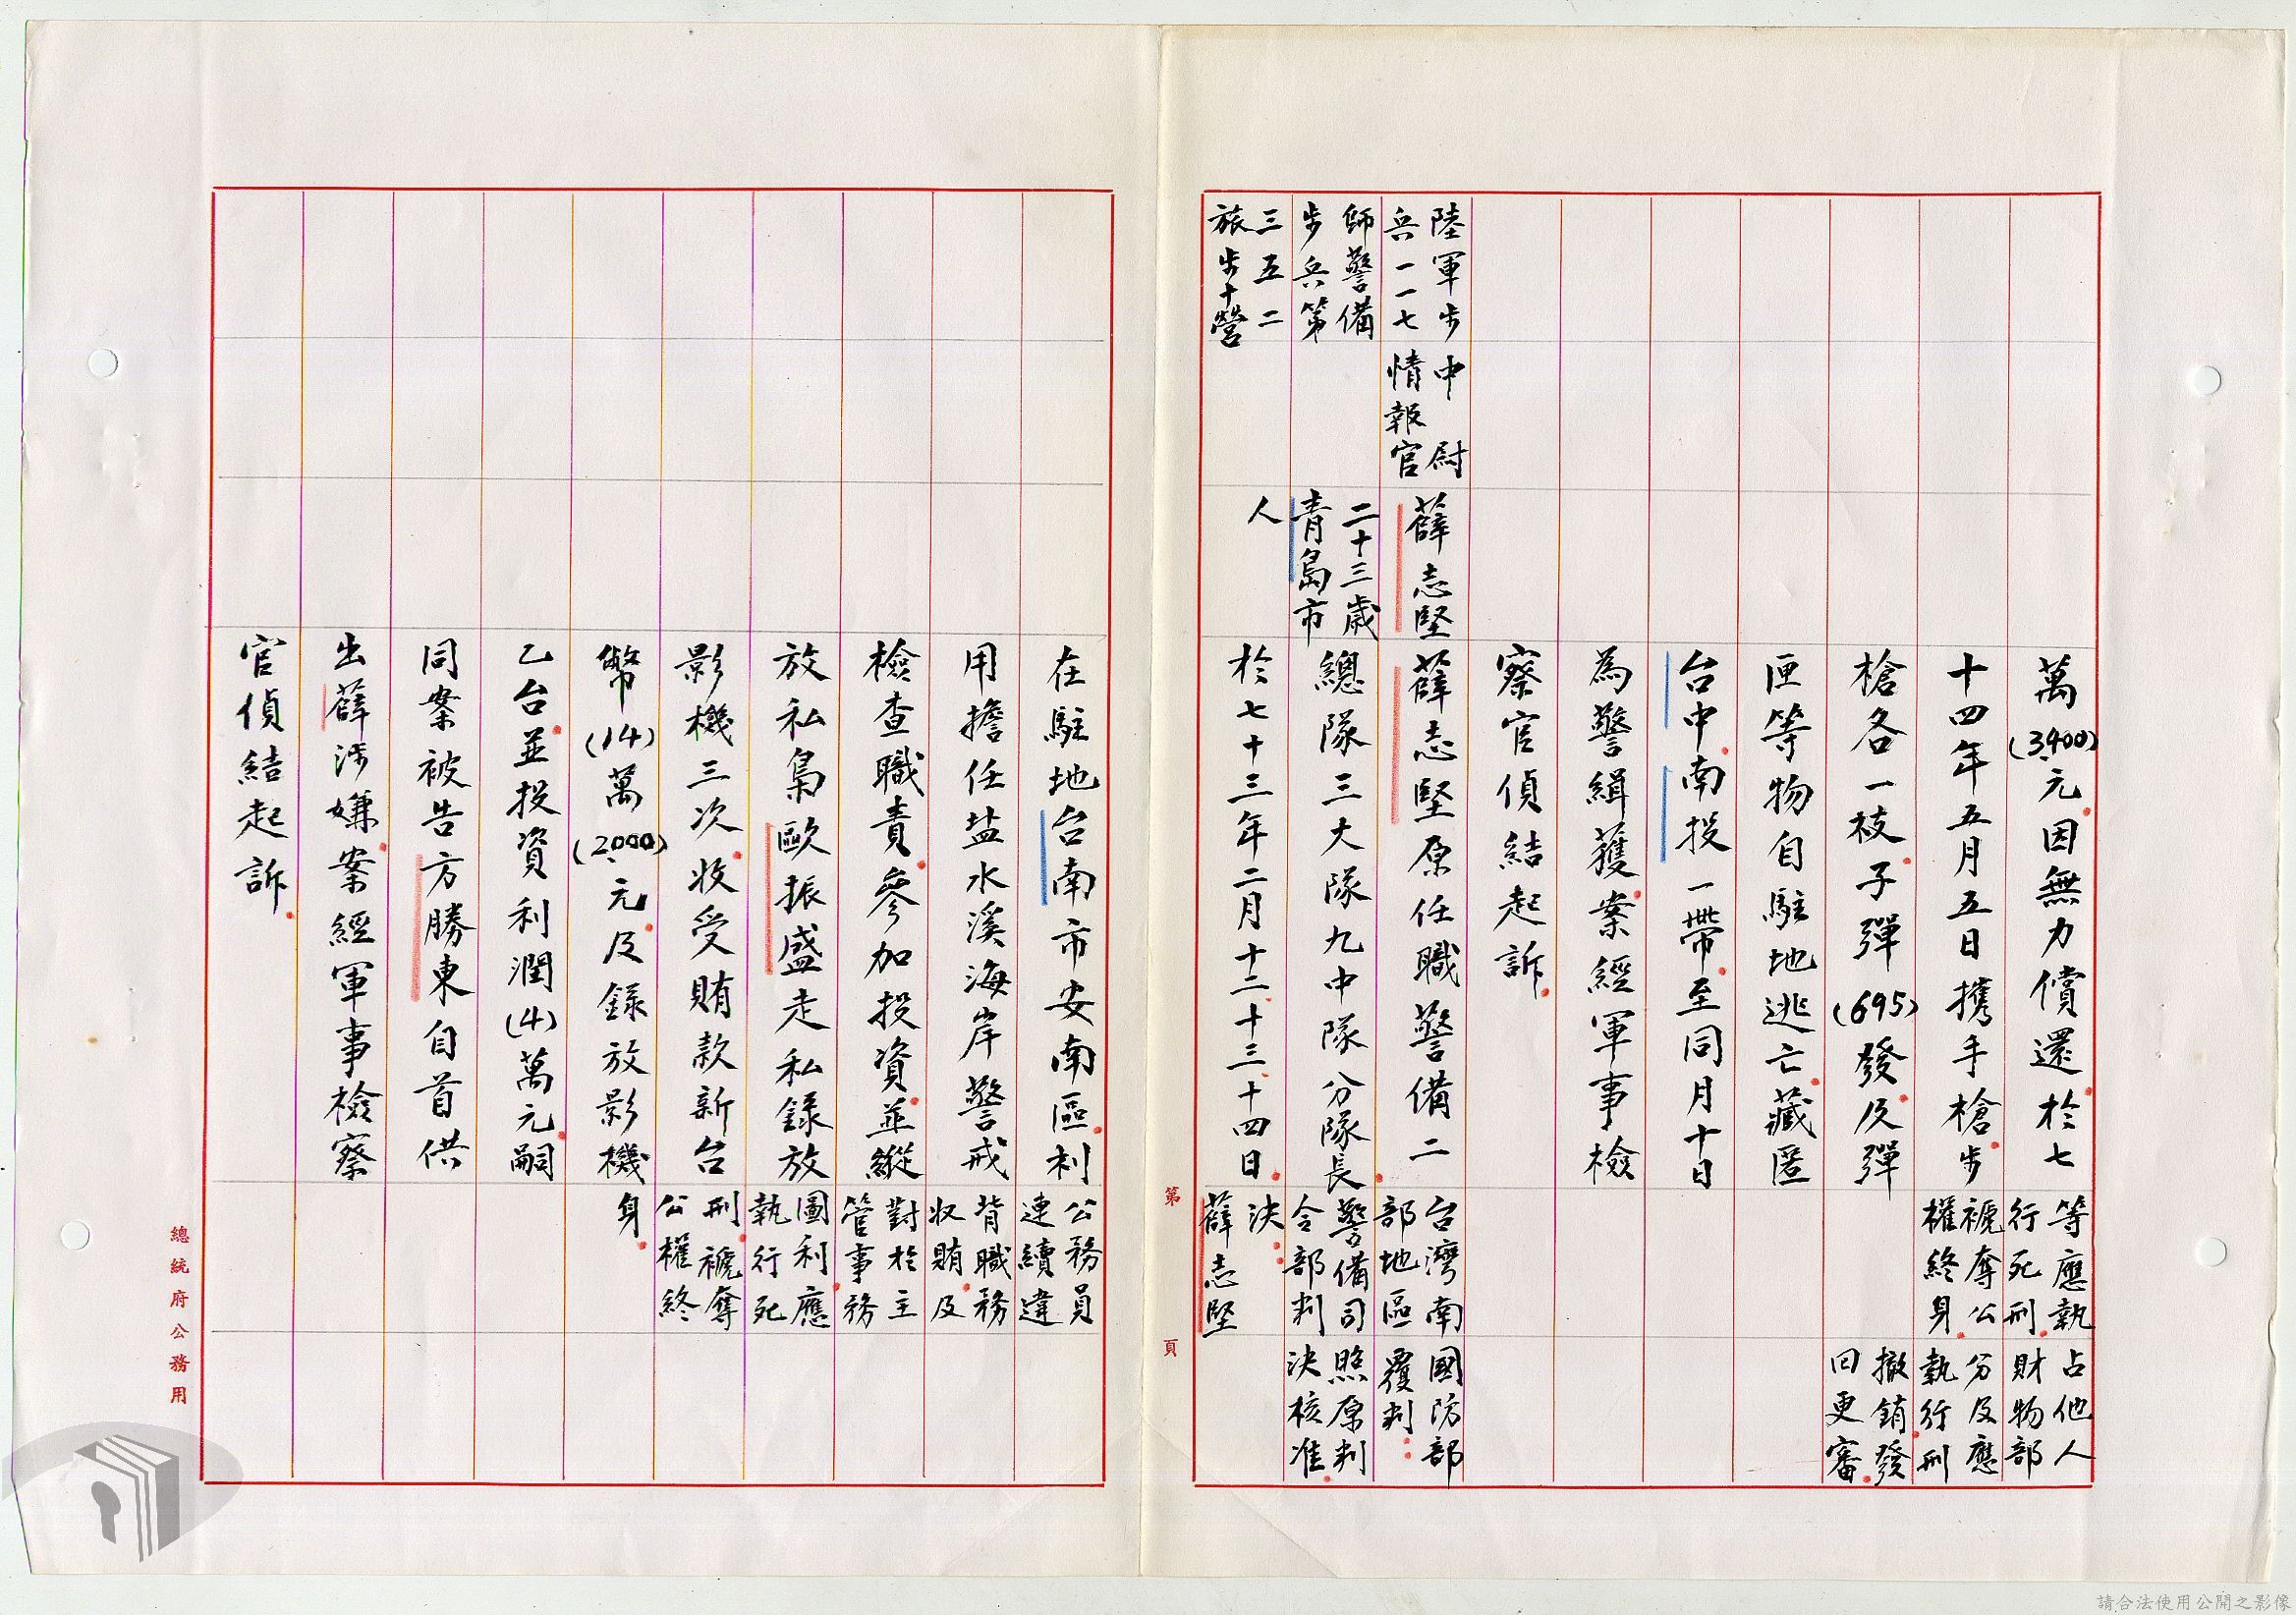 萬(3,400)元。因無力償還。於七
十四年五月五日携手槍。步
槍各一枝。子彈(695)發。及彈
匣等物自駐地逃亡。藏匿
台中。南投一帶。至同月十日
為警緝獲。案經軍事檢
察官偵結起訴。
等應執
行死刑。
褫奪公
權終身。
占他人
財物部
分及應
執行刑。
撤銷發
回更審。
陸軍步
兵一一七
師警備
步兵第
三五二
旅步十營
中尉
情報官
薛志堅
二十三歲
青島市
人
薛志堅原任職警備二
總隊三大隊九中隊分隊長。
於七十三年二月十二十三十四日。
在駐地台南市安南區。利
用擔任盐水溪海岸警戒
檢查職責。參加投資。並縱
放私梟歐振盛走私錄放
影機三次。收受賄款新台
幣(14)萬(2,000)元。及錄放影機
乙台。並投資利潤(4)萬元。嗣
同案被告方勝東自首供
出薛涉嫌。案經軍事檢察
官偵結起訴。
台灣南
部地區
警備司
令部判
決：
薛志堅
公務員
連續違
背職務
收賄。及
對於主
管事務
圖利。應
執行死
刑。褫奪
公權終
身。
國防部
覆判：
照原判
決核准。
第　頁
總統府公務用
請合法使用公開之影像